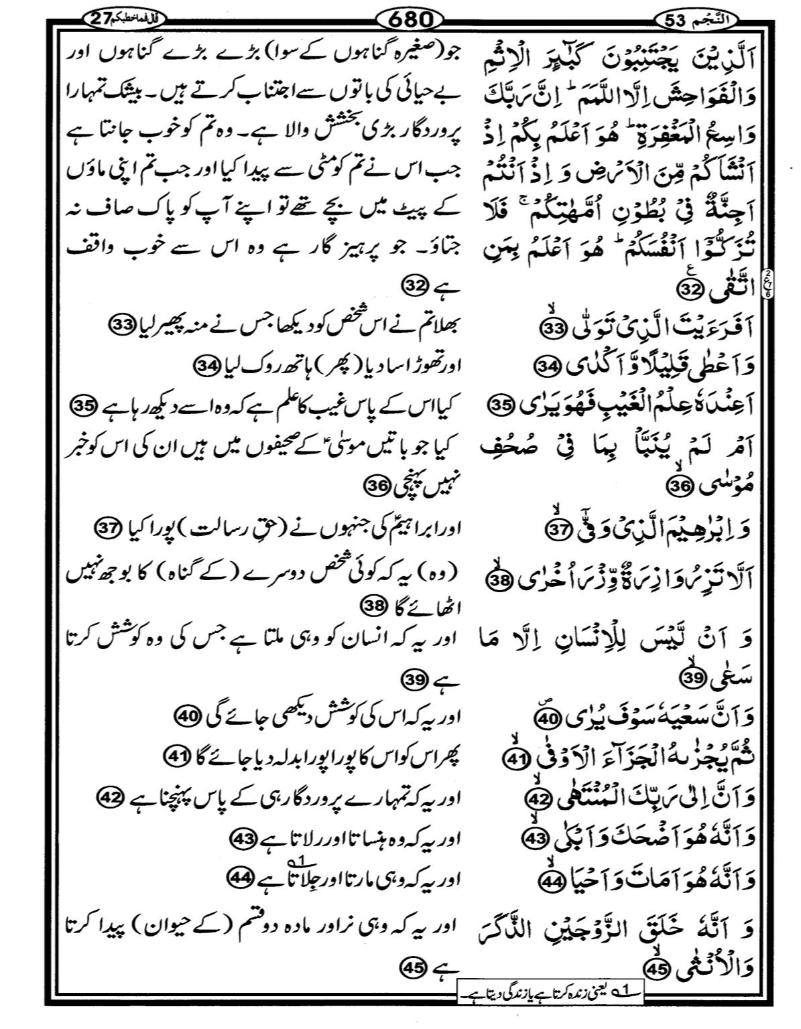 النَّجْم 53
680
قال فما خطبكم 27
اَلَّذِيْنَ يَجْتَنِبُوْنَ كَبٰٓئِرَ الْاِثْمِ
وَالْفَوَاحِشَ اِلَّا اللَّمَمَ ؕ اِنَّ رَبَّكَ
وَاسِعُ الْمَغْفِرَةِ ؕ هُوَ اَعْلَمُ بِكُمْ اِذْ
اَنْشَاَكُمْ مِّنَ الْاَرْضِ وَ اِذْ اَنْتُمْ
اَجِنَّةٌ فِيْ بُطُوْنِ اُمَّهٰتِكُمْ ۚ فَلَا
تُزَكُّوْٓا اَنْفُسَكُمْ ؕ هُوَ اَعْلَمُ بِمَنِ
اتَّقٰى ۧ 32
جو (صغیرہ گناہوں کے سوا) بڑے بڑے گناہوں اور
بے حیائی کی باتوں سے اجتناب کرتے ہیں۔ بیشک تمہارا
پروردگار بڑی بخشش والا ہے۔ وہ تم کو خوب جانتا ہے
جب اس نے تم کو مٹی سے پیدا کیا اور جب تم اپنی ماؤں
کے پیٹ میں بچے تھے تو اپنے آپ کو پاک صاف نہ
جتاؤ۔ جو پرہیز گار ہے وہ اس سے خوب واقف
ہے 32
اَفَرَءَيْتَ الَّذِيْ تَوَلّٰى ۙ 33
بھلا تم نے اس شخص کو دیکھا جس نے منہ پھیر لیا 33
وَ اَعْطٰى قَلِيْلًا وَّ اَكْدٰى 34
اور تھوڑا سا دیا (پھر) ہاتھ روک لیا 34
اَعِنْدَهٗ عِلْمُ الْغَيْبِ فَهُوَ يَرٰى 35
کیا اس کے پاس غیب کا علم ہے کہ وہ اسے دیکھ رہا ہے 35
اَمْ لَمْ يُنَبَّاْ بِمَا فِيْ صُحُفِ
مُوْسٰى ۙ 36
کیا جو باتیں موسٰی ؑ کے صحیفوں میں ہیں ان کی اس کو خبر
نہیں پہنچی 36
وَ اِبْرٰهِيْمَ الَّذِيْ وَفّٰىٓ ۙ 37
اور ابراہیم ؑ کی جنہوں نے (حقِ رسالت) پورا کیا 37
اَلَّا تَزِرُ وَازِرَةٌ وِّزْرَ اُخْرٰى ۙ 38
(وہ) یہ کہ کوئی شخص دوسرے (کے گناہ) کا بوجھ نہیں
اٹھائے گا 38
وَ اَنْ لَّيْسَ لِلْاِنْسَانِ اِلَّا مَا
سَعٰى ۙ 39
اور یہ کہ انسان کو وہی ملتا ہے جس کی وہ کوشش کرتا
ہے 39
وَ اَنَّ سَعْيَهٗ سَوْفَ يُرٰى ۪ 40
اور یہ کہ اس کی کوشش دیکھی جائے گی 40
ثُمَّ يُجْزٰىهُ الْجَزَآءَ الْاَوْفٰى ۙ 41
پھر اس کو اس کا پورا پورا بدلہ دیا جائے گا 41
وَ اَنَّ اِلٰى رَبِّكَ الْمُنْتَهٰى ۙ 42
اور یہ کہ تمہارے پروردگار ہی کے پاس پہنچنا ہے 42
وَ اَنَّهٗ هُوَ اَضْحَكَ وَ اَبْكٰى ۙ 43
اور یہ کہ وہ ہنساتا اور رلاتا ہے 43
وَ اَنَّهٗ هُوَ اَمَاتَ وَ اَحْيَا ۙ 44
اور یہ کہ وہی مارتا اور جِلاتا ؂1 ہے 44
وَ اَنَّهٗ خَلَقَ الزَّوْجَيْنِ الذَّكَرَ
وَالْاُنْثٰى ۙ 45
اور یہ کہ وہی نر اور مادہ دو قسم (کے حیوان) پیدا کرتا
ہے 45
؂1 یعنی زندہ کرتا ہے یا زندگی دیتا ہے۔